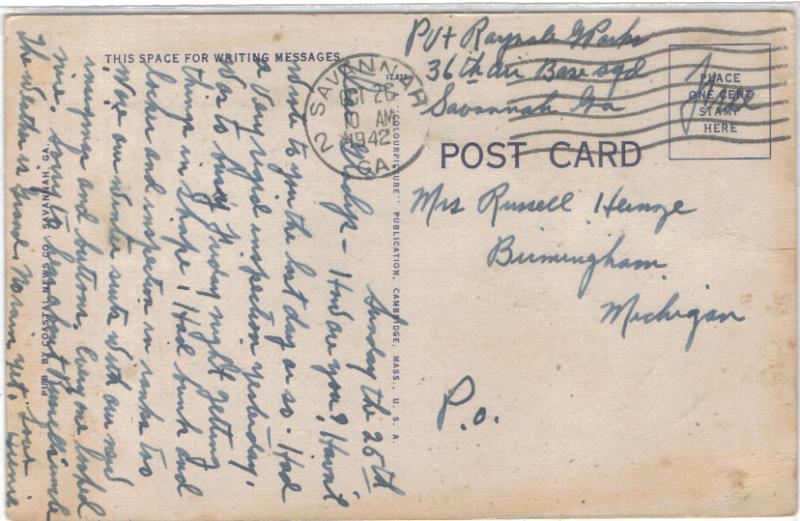 Pvt Raymale G Parks
36th Air Base sqd
Savannah Ga
Free
PLACE
ONE CENT
STAMP
HERE
THIS SPACE FOR WRITING MESSAGES
SAVANNAH
OCT 26
10 AM
1942
2
GA.
POST CARD
Mrs Russell Heinze
Birmingham
Michigan
P.O.
Sunday the 25th
Gladys - How are you? Havn't
wrote to you the last day or so. Had
a very rigid inspection yesterday.
Was to busy Friday night getting
things in shape! Had bunk and
locker and inspection in ranks too
Wore our winter suits with our new
insignia and buttons. Every one looked
nice. Sorry to hear about uncle
The weather is grand. No rain yet. Love
"COLOURPICTURE" PUBLICATION, CAMBRIDGE, MASS., U. S. A.
PUB. BY COASTAL NEWS CO., SAVANNAH, GA.